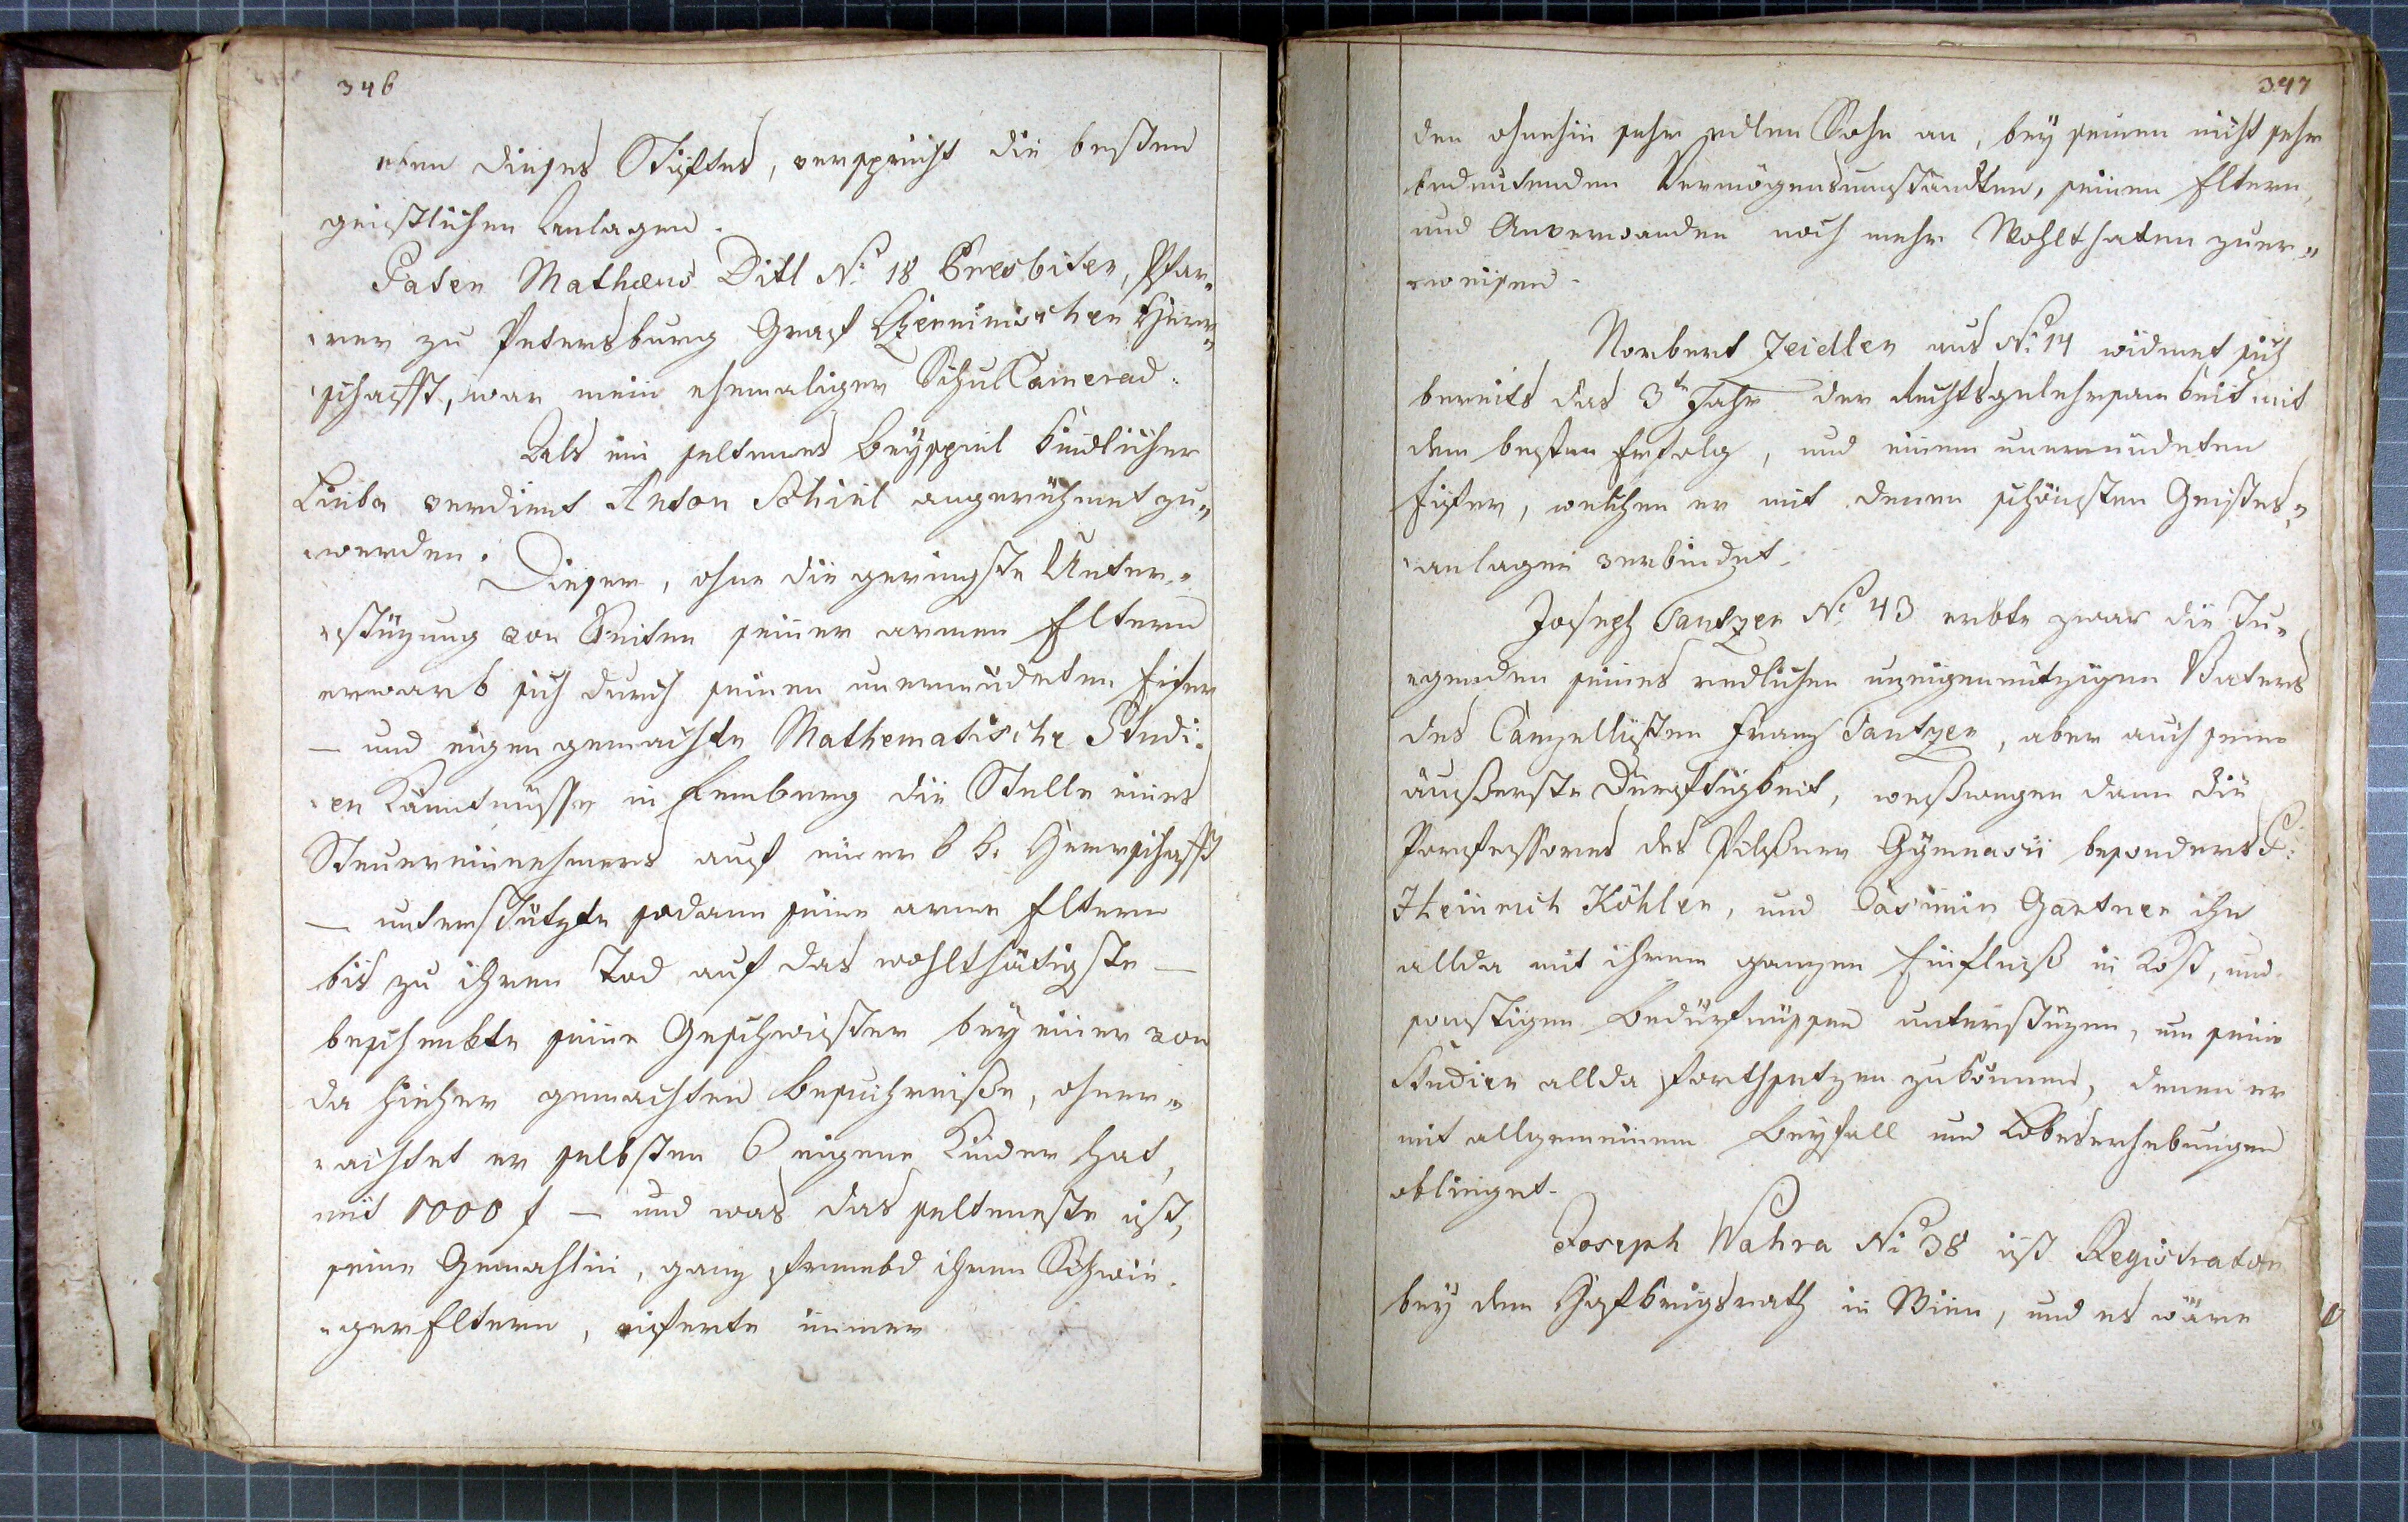 346
eben dieses Stiftes, verspricht die besten
geistlichen Anlagen.
Pater Mathæus Ditl No 18 Presbiter, Pfar„
„rer zu Petersburg Graf Czerninischer Herr„
„schafft, war mein ehemaliger SchulCamerad.
Als ein seltenes Beyspiel kindlicher
Liebe verdient Anton Schiel angerühmet zu„
„werden.
Dieser, ohne die geringste Unter„
„stüzung von Seiten seiner armen Eltern
erwarb sich durch seinen unermüdeten Eifer
— und eigen gemachte Mathematische Studi„
„en Känntnüsse in Lemberg die Stelle eines
Steuereinnehmers auf einer k k. Herrschafft
— unterstützte sodann seine arme Eltern
bis zu ihren Tod auf das wohlthätigste —
beschenkte seine Geschwister bey einer von
da hieher gemachten Besuchreiße, ohner„
„achtet er selbsten 6 eigene Kinder hat,
mit 1000 f — und was das selteneste ist,
seine Gemahlin, ganz frembd ihren Schwie„
„gerEltern, eiferte immer
347
den ohnehin sehr edlen Sohn an, bey seinen nicht sehr
bedeutenden Vermögensumständten, seinen Eltern,
und Anverwanden noch mehr Wohlthaten zuer„
„weisen.
Norbert Zeidler aus No 14 widmet sich
bereits das 3te Jahr der Rechtsgelehrsamkeit mit
dem besten Erfolg, und einem unermüdeten
Eifer, welchen er mit denen schönsten Geistes„
„anlagen verbindet.
Joseph Tantzer No 43 erbte zwar die Tu„
„genden seines redlichen uneigennützigen Vaters
des Canzellisten Franz Tantzer, aber auch seine
äußerste Dürftigkeit, weßwegen dann die
Professores des Pilßner Gÿmnasii besonders P:
Heinrich Köhler, und Casimir Gartner ihn
allda mit ihrem ganzen Einfluß in Kost, und
sonstigen Bedürfnüssen unterstüzen, um seine
Studien allda forthsetzen zukönnen, denen er
mit allgemeinem Beyfall und Lobeserhebungen
oblieget.
Joseph Wahra No 38 ist Registrator
bey dem Hofkriegsrath in Wien, und es wäre